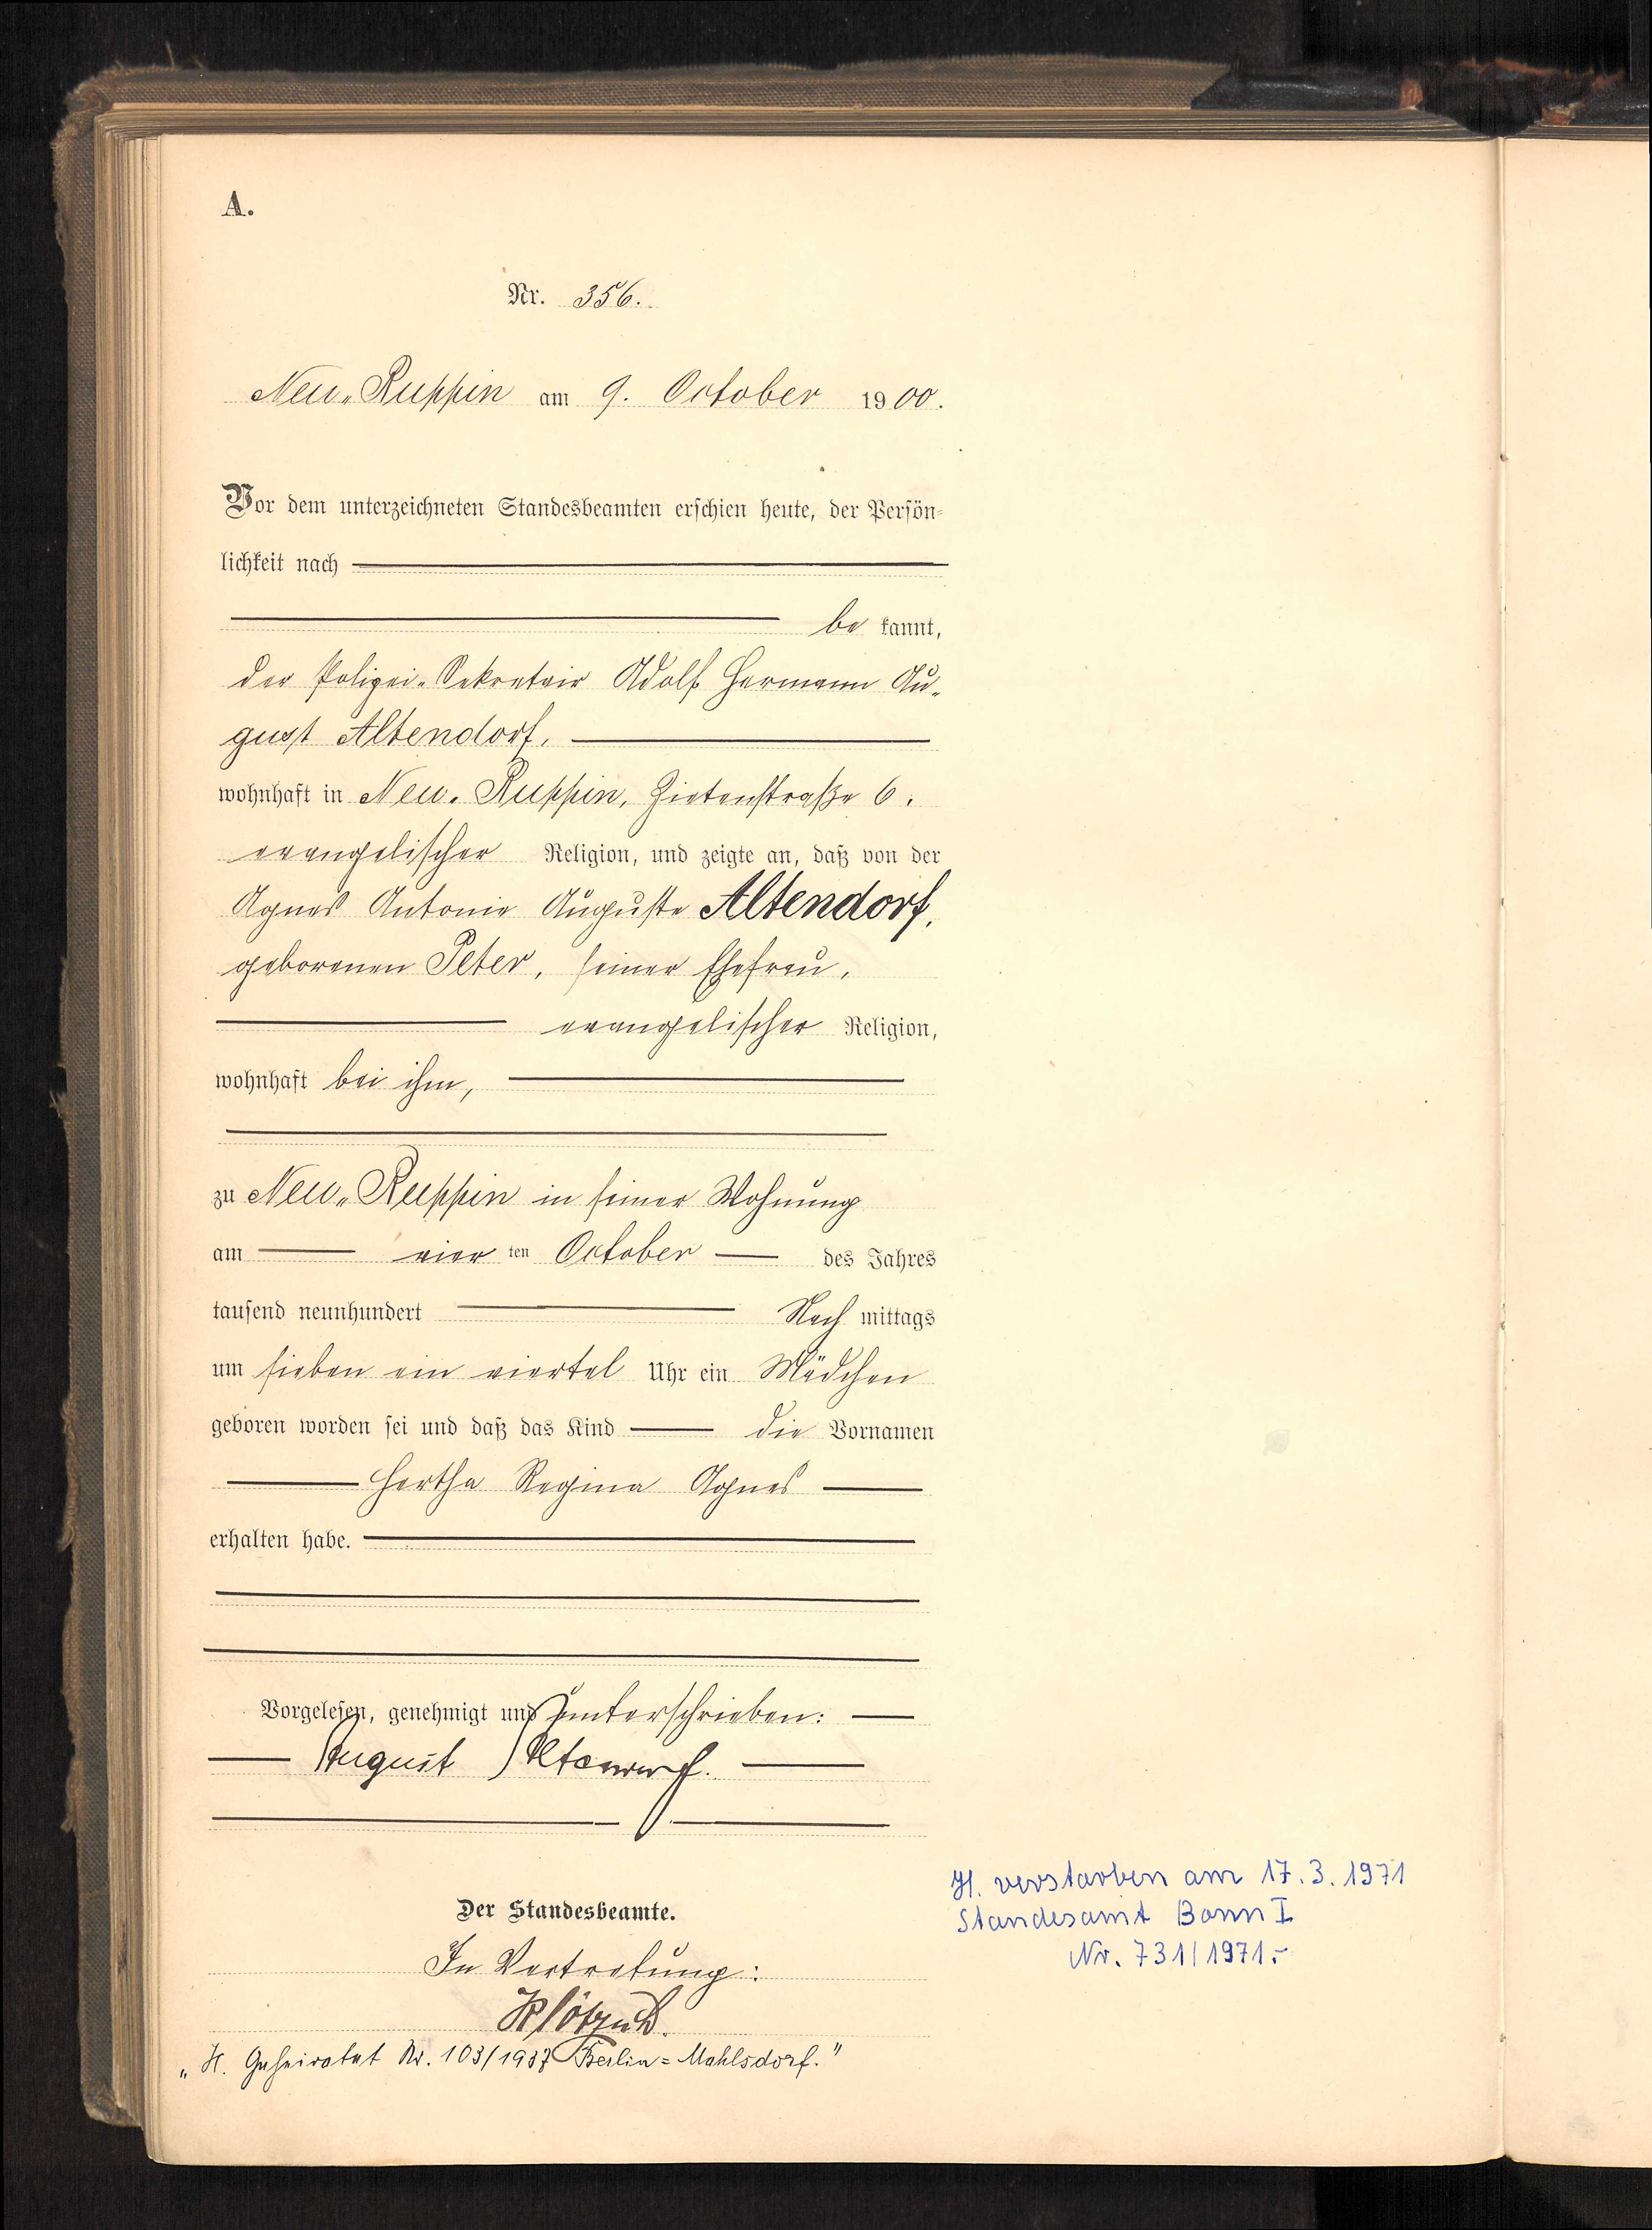 A.
Nr. 356.
Neu-Ruppin am 9. October 1900.
Vor dem unterzeichneten Standesbeamten erschien heute, der Persön-
lichkeit nach
be kannt,
der Polizei-Sekretair Adolf Hermann Au-
gust Altendorf,
wohnhaft in Neu-Ruppin, Zietenstraße 6,
evangelischer Religion, und zeigte an, daß von der
Agnes Antonie Auguste Altendorf,
geborenen Peter, seiner Ehefrau,
evangelischer Religion,
wohnhaft bei ihm,
zu Neu-Ruppin in seiner Wohnung
am vier ten October des Jahres
tausend neunhundert Nach mittags
um sieben ein viertel Uhr ein Mädchen
geboren worden sei und daß das Kind die Vornamen
Hertha Regina Agnes
erhalten habe.
Vorgelesen, genehmigt und unterschrieben:
August Altendorf.
Der Standesbeamte.
In Vertretung:
"H. Geheiratet Nr. 103/1937 Berlin=Mahlsdorf."
H. verstorben am 17.3.1971
Standesamt Bonn I
Nr. 731/1971.-